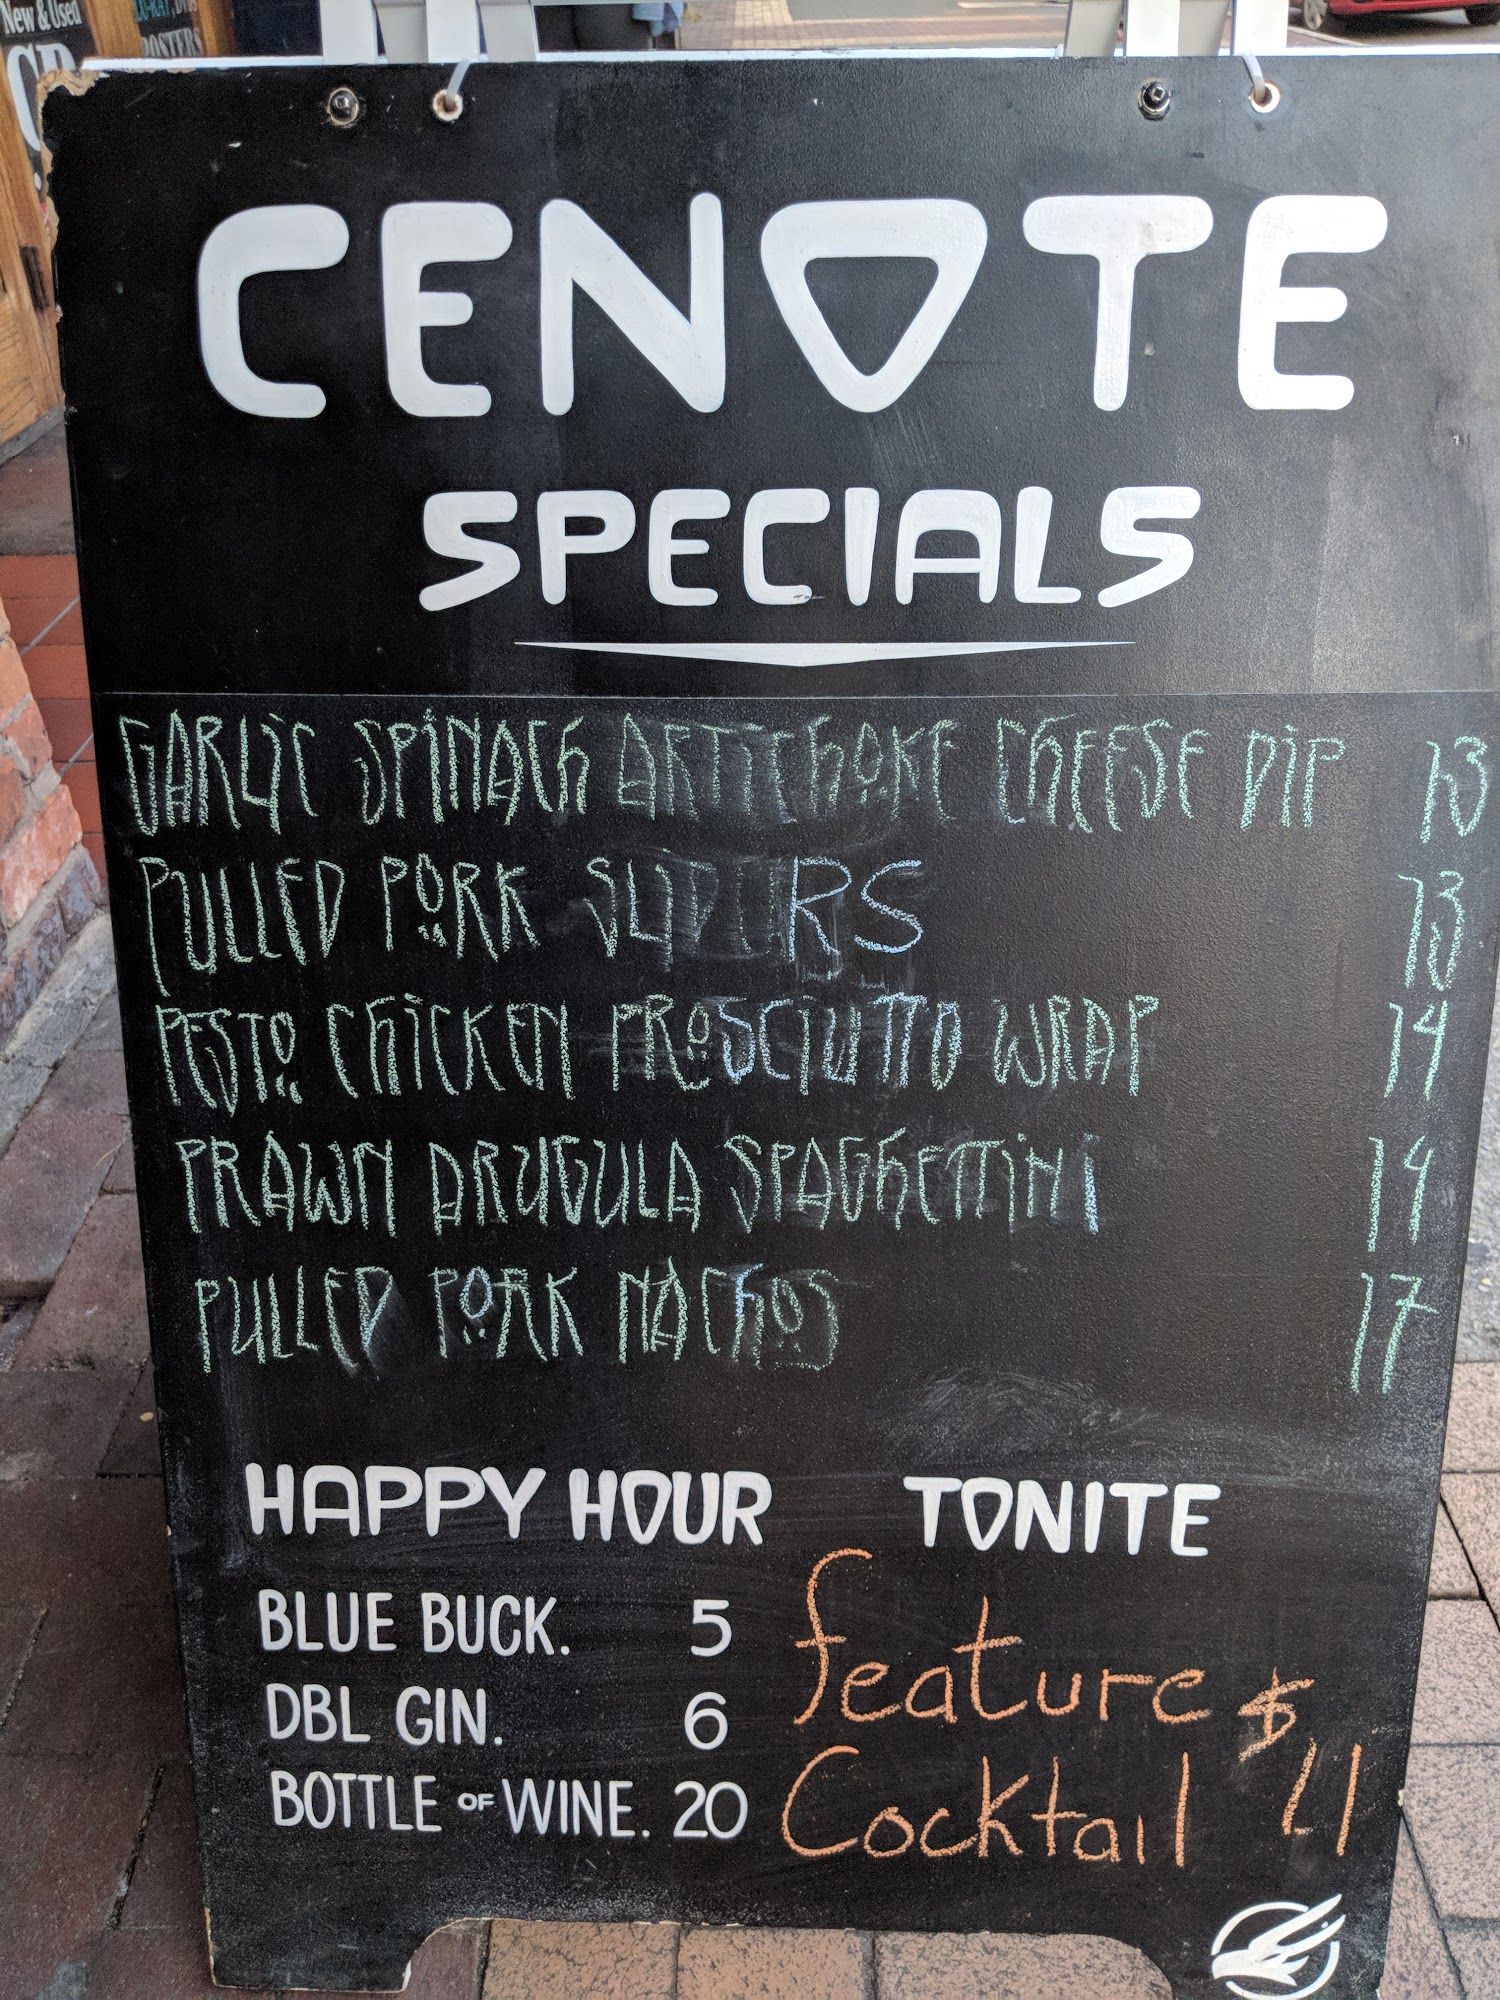 New & Used
CD
POSTERS
CENOTE
SPECIALS
GARLIC SPINACH ARTICHOKE CHEESE DIP 13
PULLED PORK SLIDERS 13
PESTO CHICKEN PROSCIUTTO WRAP 14
PRAWN ARUGULA SPAGHETTINI 14
PULLED PORK NACHOS 17
HAPPY HOUR
BLUE BUCK. 5
DBL GIN. 6
BOTTLE OF WINE. 20
TONITE
feature
Cocktail $